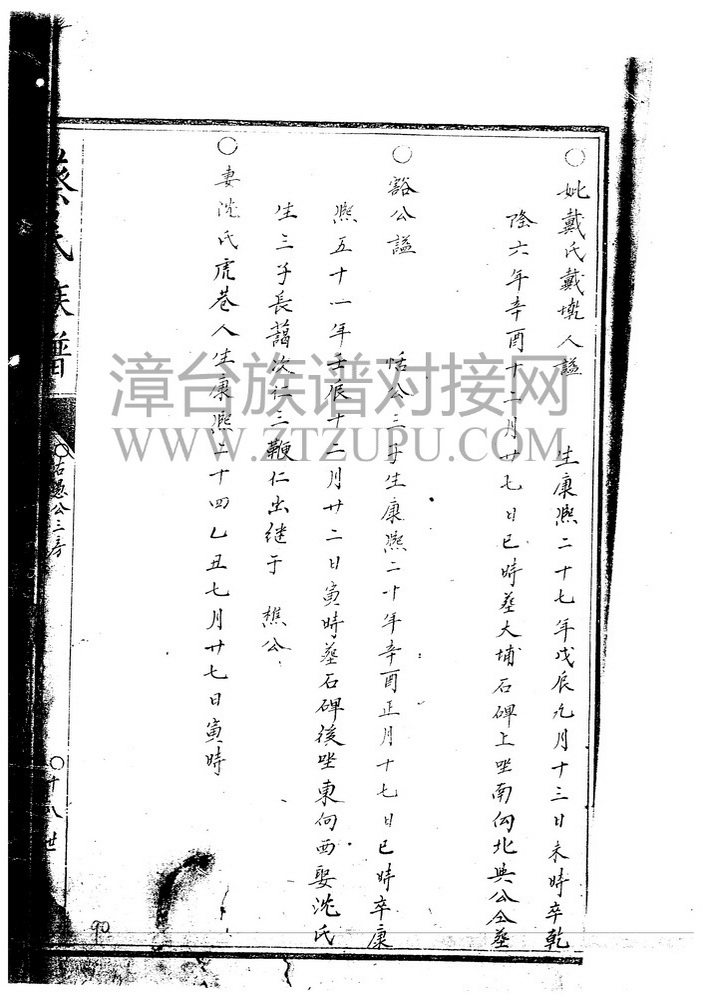 ○妣戴氏戴墘人謚 生康熙二十七年戊辰九月十三日未時卒乾
隆六年辛酉十二月廿七日巳時葬大埔石碑上坐南向北與公仝葬
○谿公謚 恬公三子生康熙二十年辛酉正月十七日巳時卒康
熙五十一年壬辰十二月廿二日寅時葬石碑後坐東向西娶沈氏
生三子長藹次仁三鞭仁出继于 樵公
○妻沈氏虎巷人生康熙二十四乙丑七月廿七日寅時
蔡氏族譜
○右愚公三房
○十八世
90
漳台族谱对接网
WWW.ZTZUPU.COM